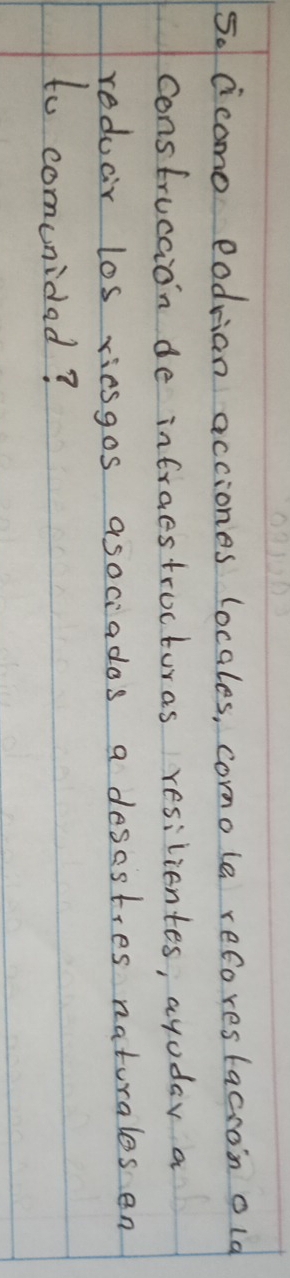 5. ¿como Podrian acciones locales, como la reforestación o la
construcción de infraestructuras resilientes, ayudar a
reducir los riesgos asociados a desastres naturales en
tu comunidad?